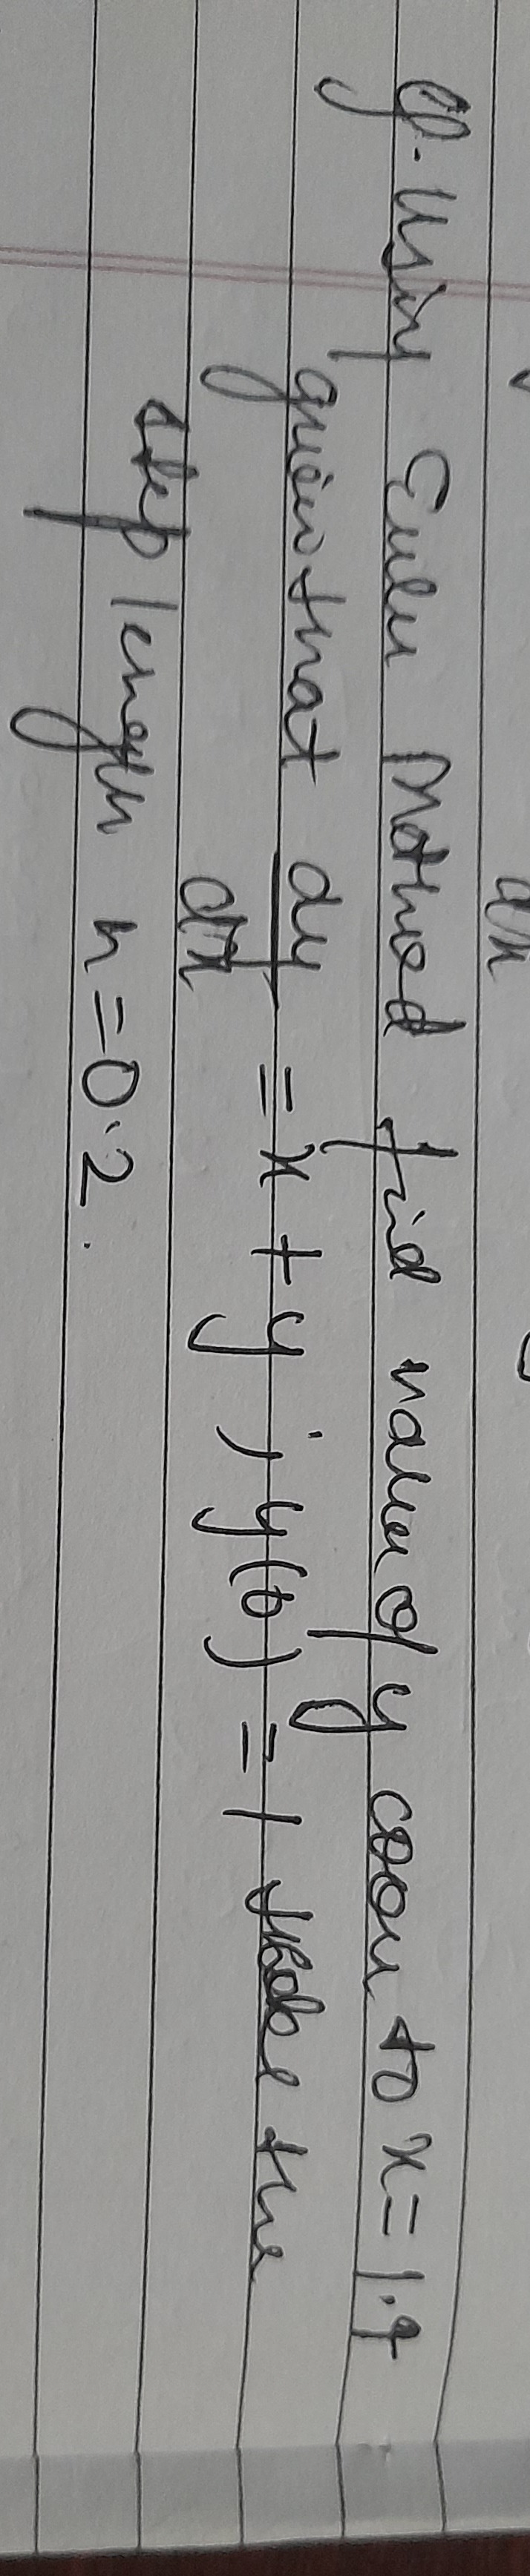 Q. Using Euler Method find value of y coorr to x = 1.4
given that dy/dx = x + y ; y(0) = 1 the
step length h = 0.2.
dx